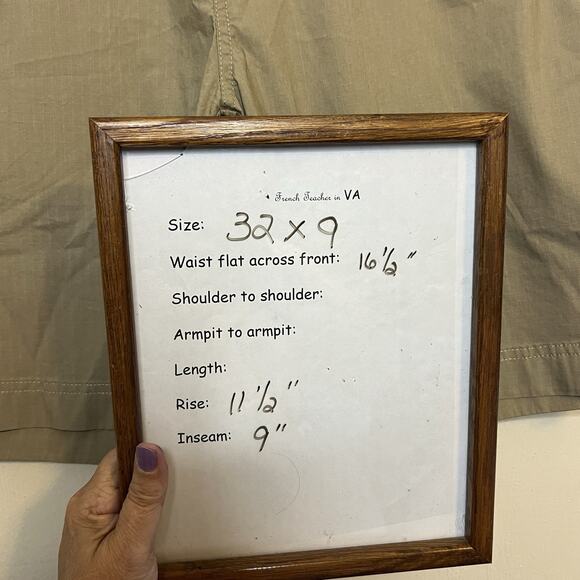 French Teacher in VA
Size: 32 x 9
Waist flat across front: 16 1/2"
Shoulder to shoulder:
Armpit to armpit:
Length:
Rise: 11 1/2"
Inseam: 9"